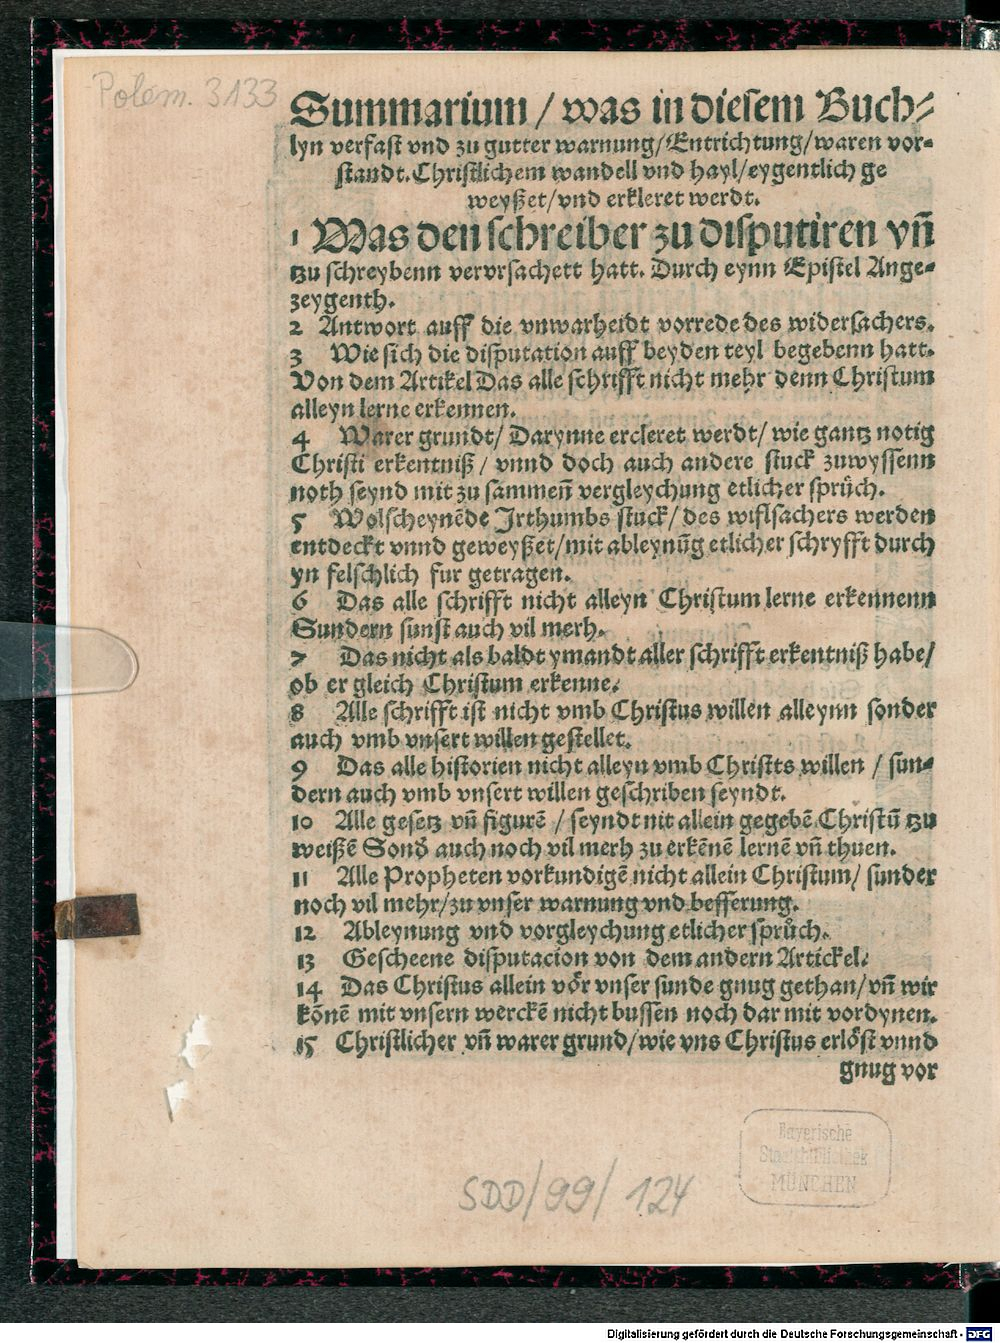 Polem. 3133
Summarium / was in diesem Buch⸗
lyn verfast vnd zu gutter warnung/ Entrichtung/ waren vor⸗
standt. Christlichem wandell vnd hayl/ eygentlich ge
weyßet/ vnd erkleret werdt.
1 Was den schreiber zu disputiren vn̄
tzu schreybenn vervrsachett hatt. Durch eynn Epistel Ange⸗
zeygenth.
2 Antwort auff die vnwarheidt vorrede des widersachers.
3 Wie sich die disputation auff beyden teyl begebenn hatt.
Von dem Artikel Das alle schrifft nicht mehr denn Christum
alleyn lerne erkennen.
4 Warer grundt/ Darynne ercleret werdt/ wie gantz notig
Christi erkentniß / vnnd doch auch andere stuck zuwyssenn
noth seynd mit zu sammen̄ vergleychung etlicher sprüch.
5 Wolscheynēde Jrthumbs stuck/ des wiflsachers werden
entdeckt vnnd geweyßet/ mit ableynūg etlicher schryfft durch
yn felschlich fur getragen.
6 Das alle schrifft nicht alleyn Christum lerne erkennenn
Sundern sunst auch vil merh.
7 Das nicht als baldt ymandt aller schrifft erkentniß habe/
ob er gleich Christum erkenne.
8 Alle schrifft ist nicht vmb Christus willen alleynn sonder
auch vmb vnsert willen gestellet.
9 Das alle historien nicht alleyn vmb Christts willen / sun⸗
dern auch vmb vnsert willen geschriben seyndt.
10 Alle gesetz vn̄ figurē / seyndt nit allein gegebē Christū tzu
weißē Sond auch noch vil merh zu erkēnē lernē vn̄ thuen.
11 Alle Propheten vorkundigē nicht allein Christum/ sunder
noch vil mehr/ zu vnser warnung vnd besserung.
12 Ableynung vnd vorgleychung etlicher sprůch.
13 Gescheene disputacion von dem andern Artickel.
14 Das Christus allein vör vnser sunde gnug gethan/ vn̄ wir
kōnē mit vnsern werckē nicht bussen noch dar mit vordynen.
15 Christlicher vn̄ warer grund/ wie vns Christus erlöst vnnd
gnug vor
Bayerische
Staatsbibliothek
MÜNCHEN
SDD/99/ 124
Digitalisierung gefördert durch die Deutsche Forschungsgemeinschaft - DFG